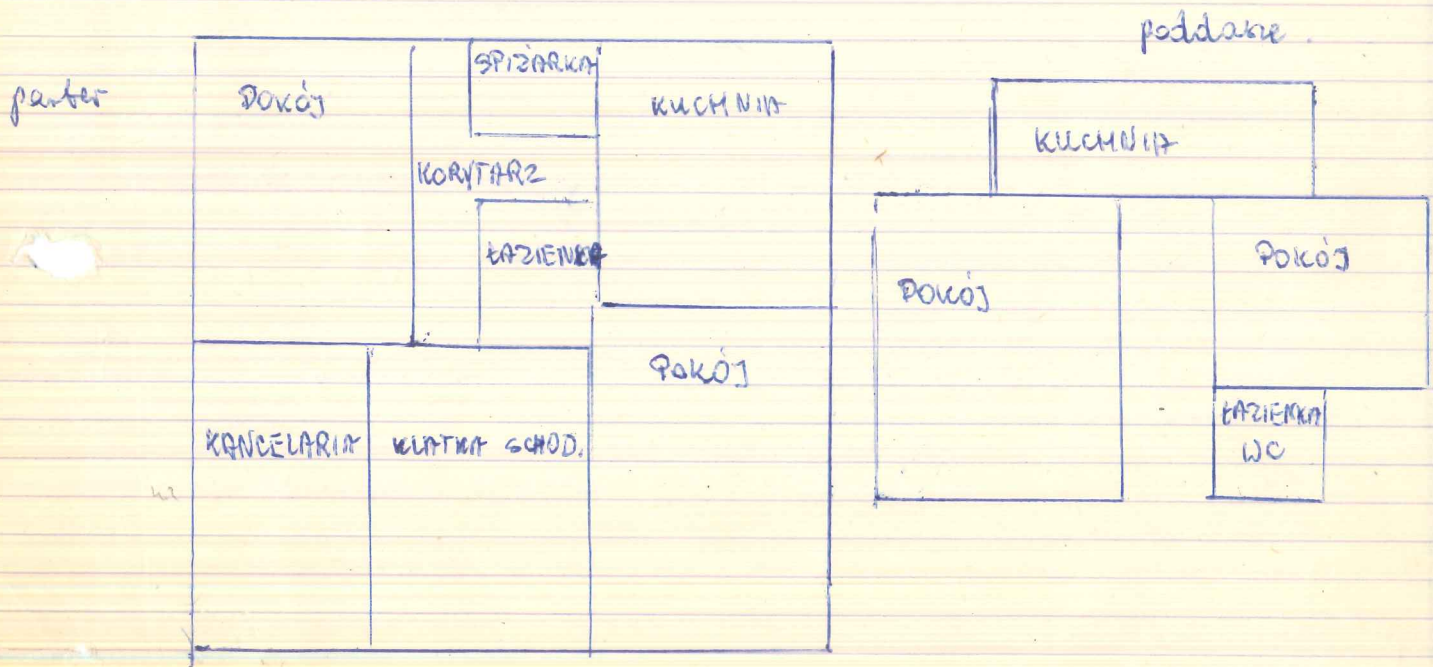 poddasze.
parter
POKÓJ
SPIŻARKA
KUCHNIA
KORYTARZ
ŁAZIENKA
POKÓJ
KANCELARIA
KLATKA SCHOD.
KUCHNIA
POKÓJ
POKÓJ
ŁAZIENKA
WC